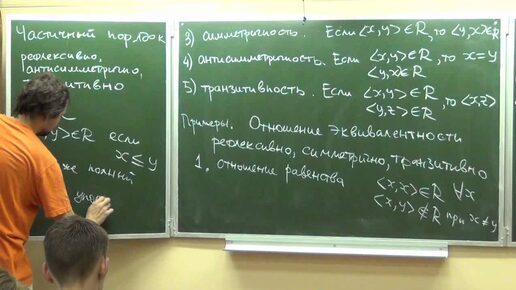 Частичный порядок
рефлексивно,
антисимметрично,
транзитивно
y>∈R если
x ≤ y
же полный
упо
3) симметричность. Если <x,y>∈R, то <y,x>∈R
4) антисимметричность. Если <x,y>∈R, то x=y
<y,x>∈R
5) транзитивность. Если <x,y>∈R, то <x,z>
<y,z>∈R
Примеры. Отношение эквивалентности
рефлексивно, симметрично, транзитивно
1. отношение равенства
<x,x>∈R ∀x
<x,y>∉R при x≠y